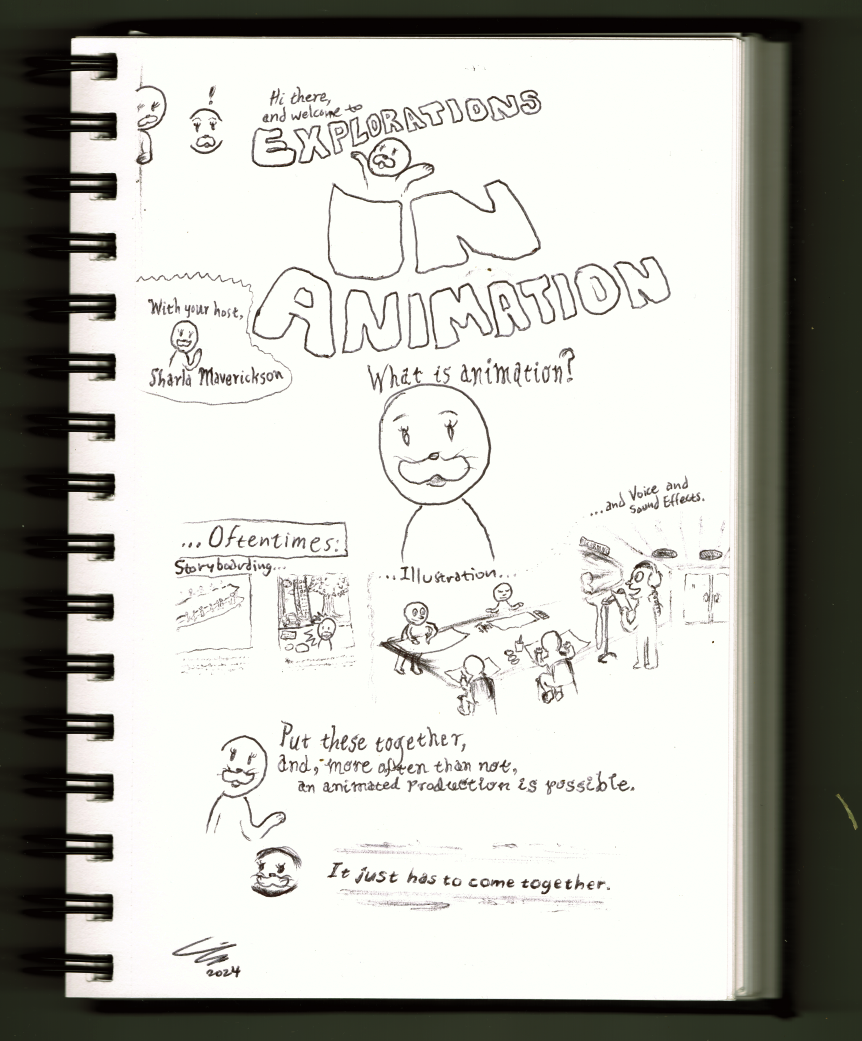 !
Hi there,
and welcome to
EXPLORATIONS
iN
ANIMATION
With your host,
Sharla Maverickson
What is animation?
...Oftentimes:
Storyboarding...
...Illustration...
...and Voice and
Sound Effects.
Put these together,
and, more often than not,
an animated production is possible.
It just has to come together.
2024